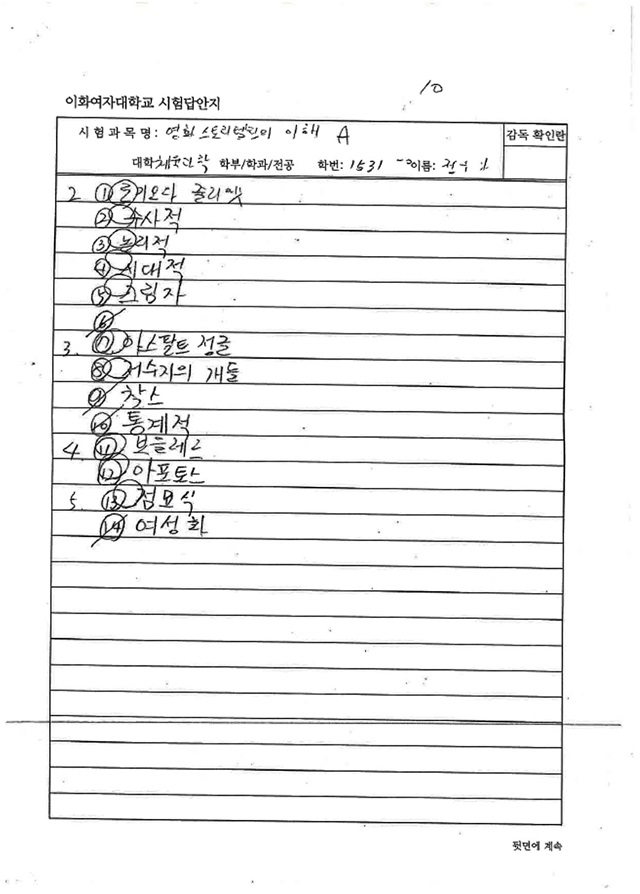 10
이화여자대학교 시험답안지
시험과목명: 영화스토리텔링의 이해 A 감독 확인란
대학 체육과학 학부/학과/전공 학번: 1531 이름:
2 ① 줄리엣
② 수사적
③ 논리적
④ 시대적
⑤ 그림자
⑥
3. ⑦ 아스팔트 정글
⑧ 저수지의 개들
⑨ 착스
⑩ 통계적
4. ⑪ 보들레르
⑫ 아포토스
5. ⑬ 점묘식
⑭ 여성화
뒷면에 계속